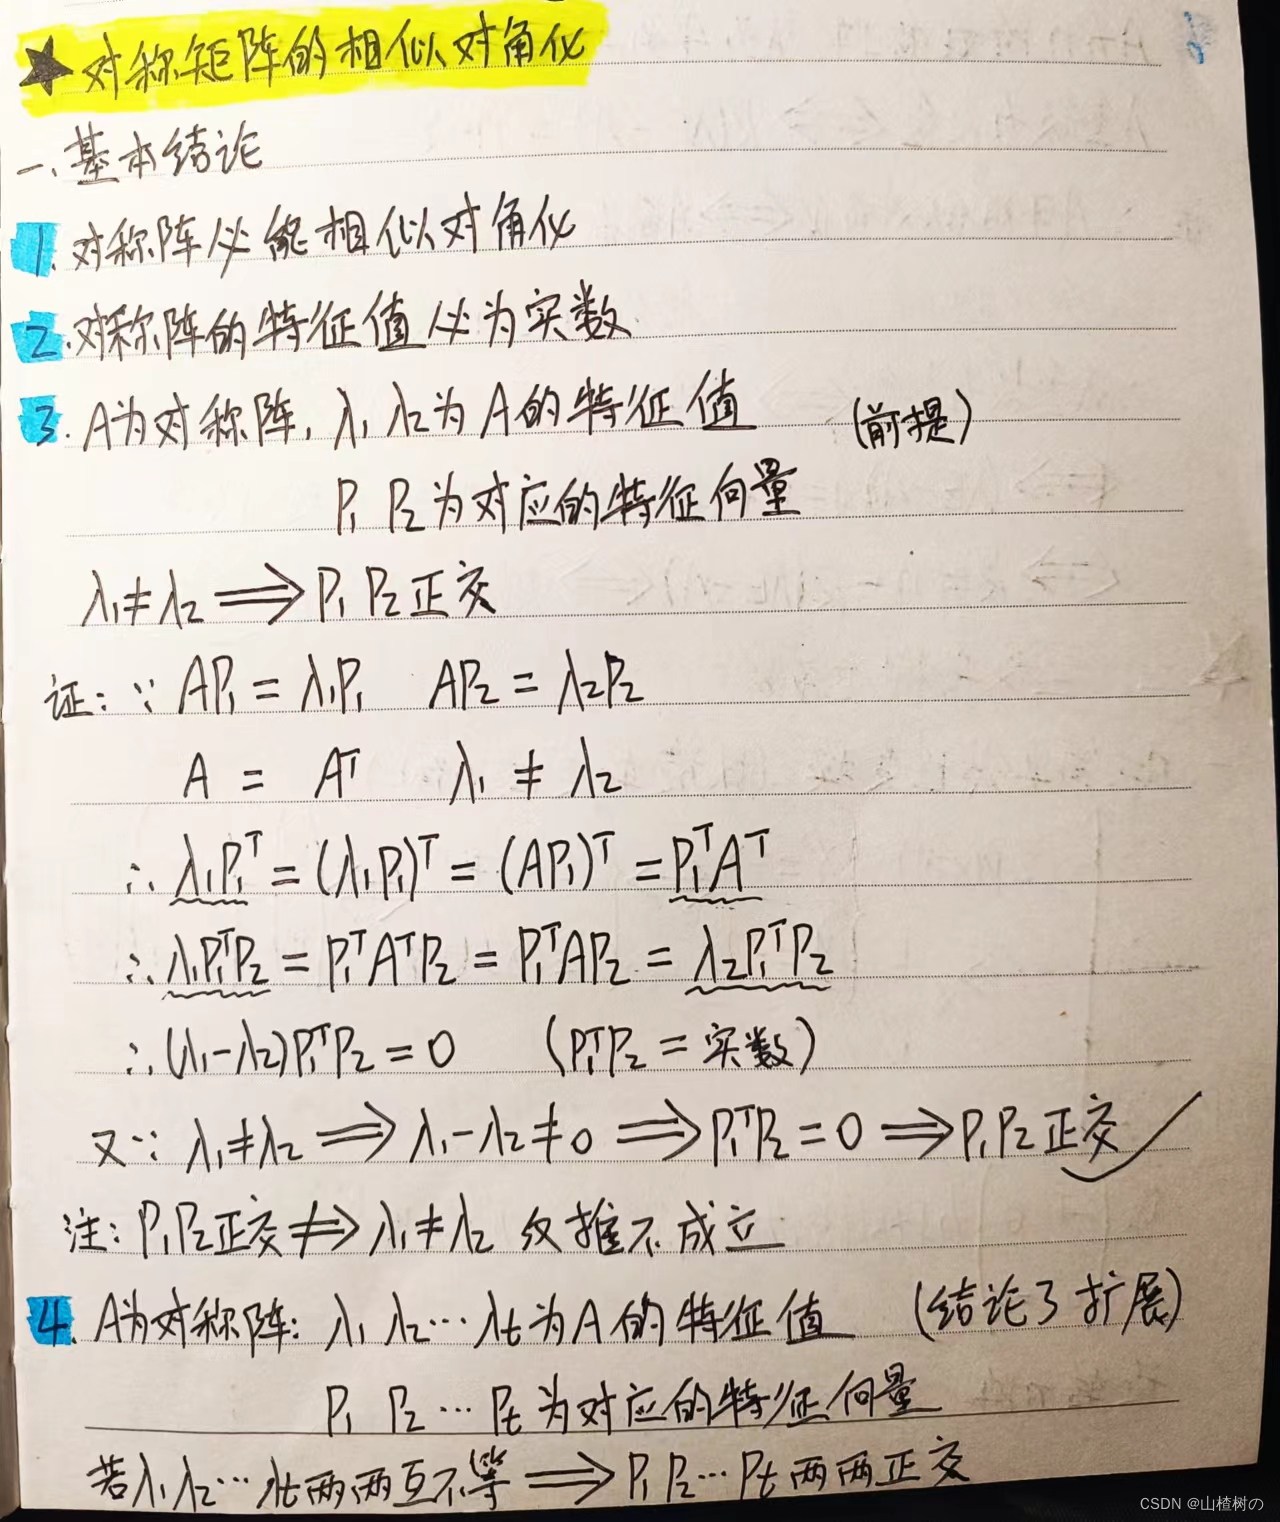 ★对称矩阵的相似对角化
一、基本结论
1. 对称阵必能相似对角化
2. 对称阵的特征值必为实数
3. A为对称阵, λ₁ λ₂为A的特征值 (前提)
P₁ P₂为对应的特征向量
λ₁≠λ₂ ⟹ P₁ P₂正交
证: ∵ AP₁ = λ₁P₁ AP₂ = λ₂P₂
A = Aᵀ λ₁ ≠ λ₂
∴ λ₁P₁ᵀ = (λ₁P₁)ᵀ = (AP₁)ᵀ = P₁ᵀAᵀ
∴ λ₁P₁ᵀP₂ = P₁ᵀAᵀP₂ = P₁ᵀAP₂ = λ₂P₁ᵀP₂
∴ (λ₁-λ₂)P₁ᵀP₂ = 0 (P₁ᵀP₂ = 实数)
又∵ λ₁≠λ₂ ⟹ λ₁-λ₂≠0 ⟹ P₁ᵀP₂ = 0 ⟹ P₁P₂正交
注: P₁P₂正交 ⇏ λ₁≠λ₂ 反推不成立
4. A为对称阵: λ₁ λ₂…λt为A的特征值 (结论3扩展)
P₁ P₂…Pt为对应的特征向量
若λ₁λ₂…λt两两互不等 ⟹ P₁ P₂…Pt两两正交
CSDN @山楂树の